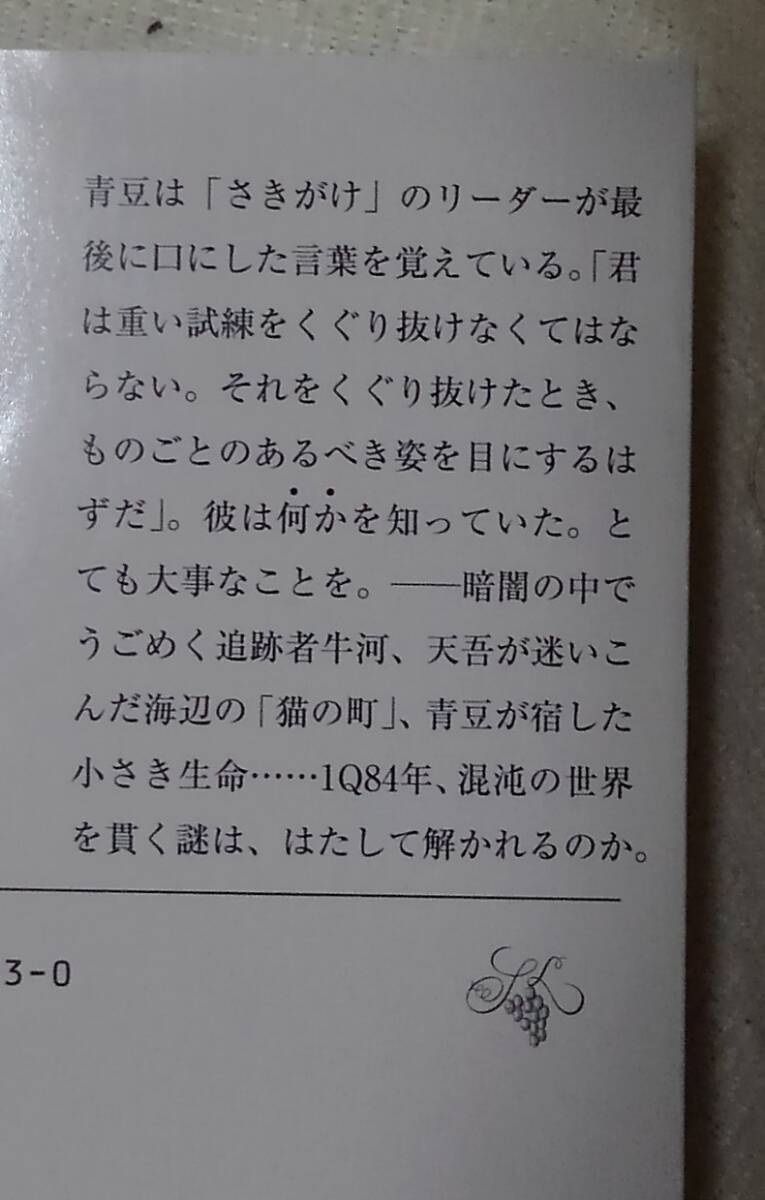 青豆は「さきがけ」のリーダーが最
後に口にした言葉を覚えている。「君
は重い試練をくぐり抜けなくてはな
らない。それをくぐり抜けたとき、
ものごとのあるべき姿を目にするは
ずだ」。彼は何かを知っていた。と
ても大事なことを。――暗闇の中で
うごめく追跡者牛河、天吾が迷いこ
んだ海辺の「猫の町」、青豆が宿した
小さき生命……1Q84年、混沌の世界
を貫く謎は、はたして解かれるのか。
3-0